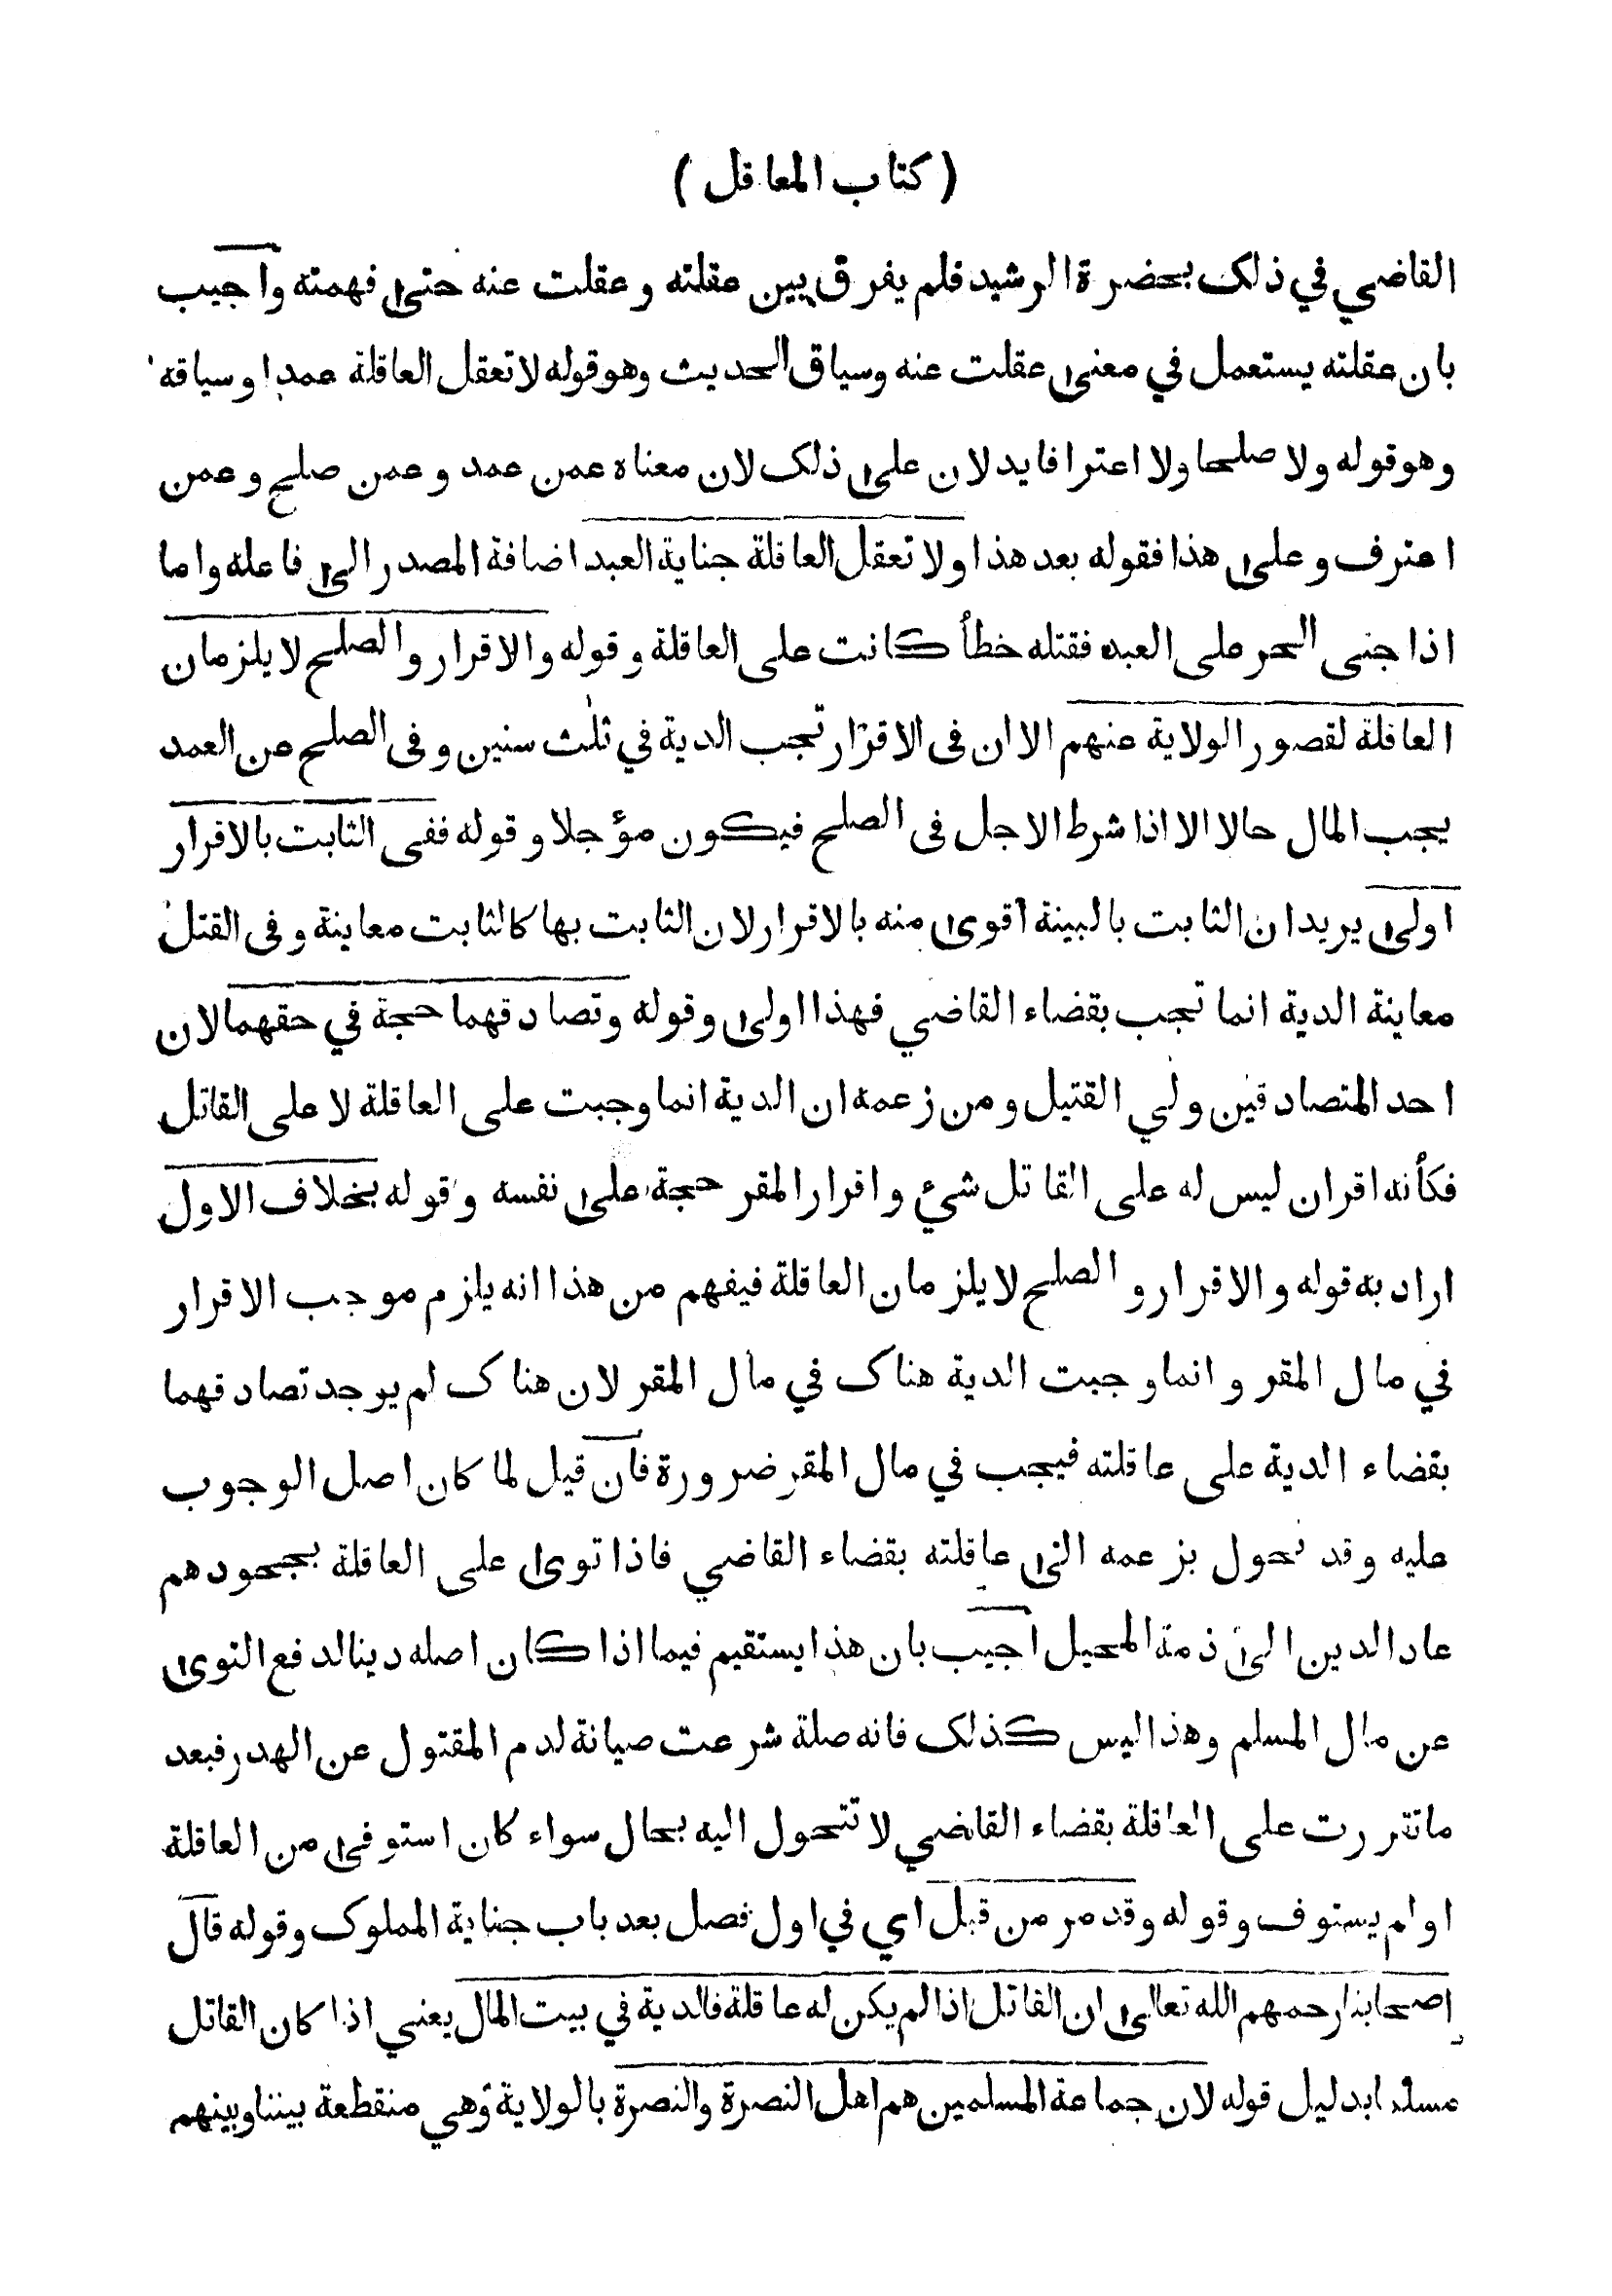 ( كتاب المعاقل )
القاضي في ذلك بحضرة الرشيد فلم يفرق بين عقلته وعقلت عنه حتى فهمته واجيب
بان عقلته يستعمل في معنى عقلت عنه وسياق الحديث وهو قوله لا تعقل العاقلة عمدا وسياقه
وهو قوله ولا صلحا ولا اعترافا يدلان على ذلك لان معناه عمن عمد وعمن صلح وعمن
اعترف وعلى هذا فقوله بعد هذا ولا تعقل العاقلة جناية العبد اضافة المصدر الى فاعله واما
اذا جنى الحر على العبد فقتله خطأ كانت على العاقلة وقوله والاقرار والصلح لا يلزمان
العاقلة لقصور الولاية عنهم الا ان فى الاقرار تجب الدية في ثلث سنين وفى الصلح عن العمد
يجب المال حالا الا اذا شرط الاجل فى الصلح فيكون مؤجلا وقوله ففى الثابت بالاقرار
اولى يريد ان الثابت بالبينة اقوى منه بالاقرار لان الثابت بها كالثابت معاينة وفى القتل
معاينة الدية انما تجب بقضاء القاضي فهذا اولى وقوله وتصادقهما حجة في حقهما لان
احد المتصادقين ولي القتيل ومن زعمه ان الدية انما وجبت على العاقلة لا على القاتل
فكأنه اقر ان ليس له على القاتل شيء واقرار المقر حجة على نفسه وقوله بخلاف الاول
اراد به قوله والاقرار والصلح لا يلزمان العاقلة فيفهم من هذا انه يلزم موجب الاقرار
في مال المقر وانما وجبت الدية هناك في مال المقر لان هناك لم يوجد تصادقهما
بقضاء الدية على عاقلته فيجب في مال المقر ضرورة فان قيل لما كان اصل الوجوب
عليه وقد تحول بزعمه الى عاقلته بقضاء القاضي فاذا توى على العاقلة بجحودهم
عاد الدين الى ذمة المحيل اجيب بان هذا يستقيم فيما اذا كان اصله دينا لدفع التوى
عن مال المسلم وهذا ليس كذلك فانه صلة شرعت صيانة لدم المقتول عن الهدر فبعد
ما تقررت على العاقلة بقضاء القاضي لا تتحول اليه بحال سواء كان استوفى من العاقلة
او لم يستوف وقوله وقد مر من قبل اي في اول فصل بعد باب جناية المملوك وقوله قال
اصحابنا رحمهم الله تعالى ان القاتل اذا لم يكن له عاقلة فالدية في بيت المال يعني اذا كان القاتل
مسلما بدليل قوله لان جماعة المسلمين هم اهل النصرة والنصرة بالولاية وهي منقطعة بيننا وبينهم